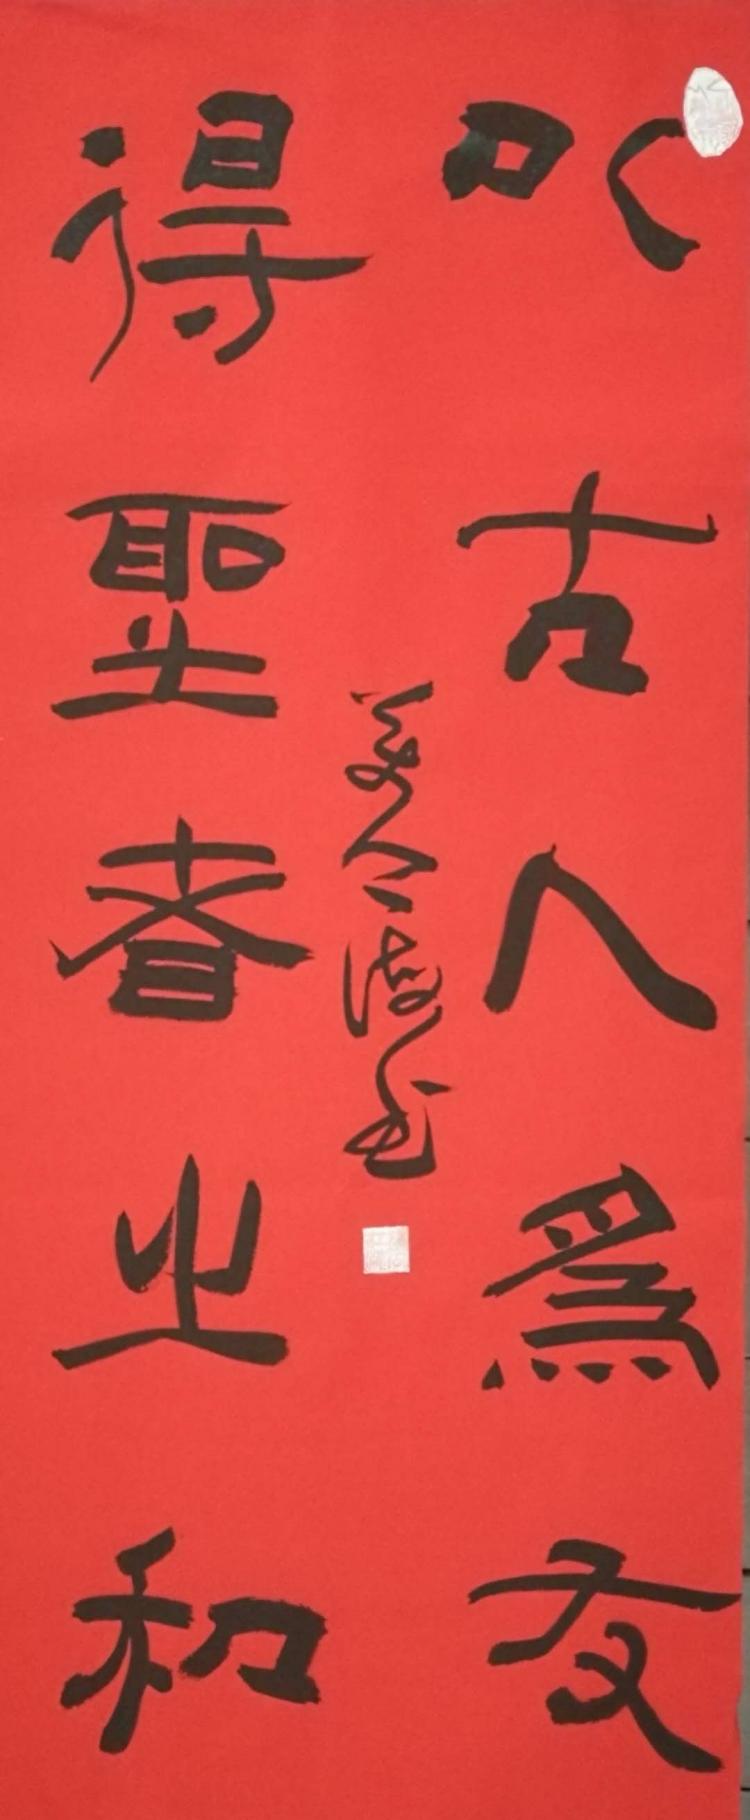 以古人爲友
得聖者之和